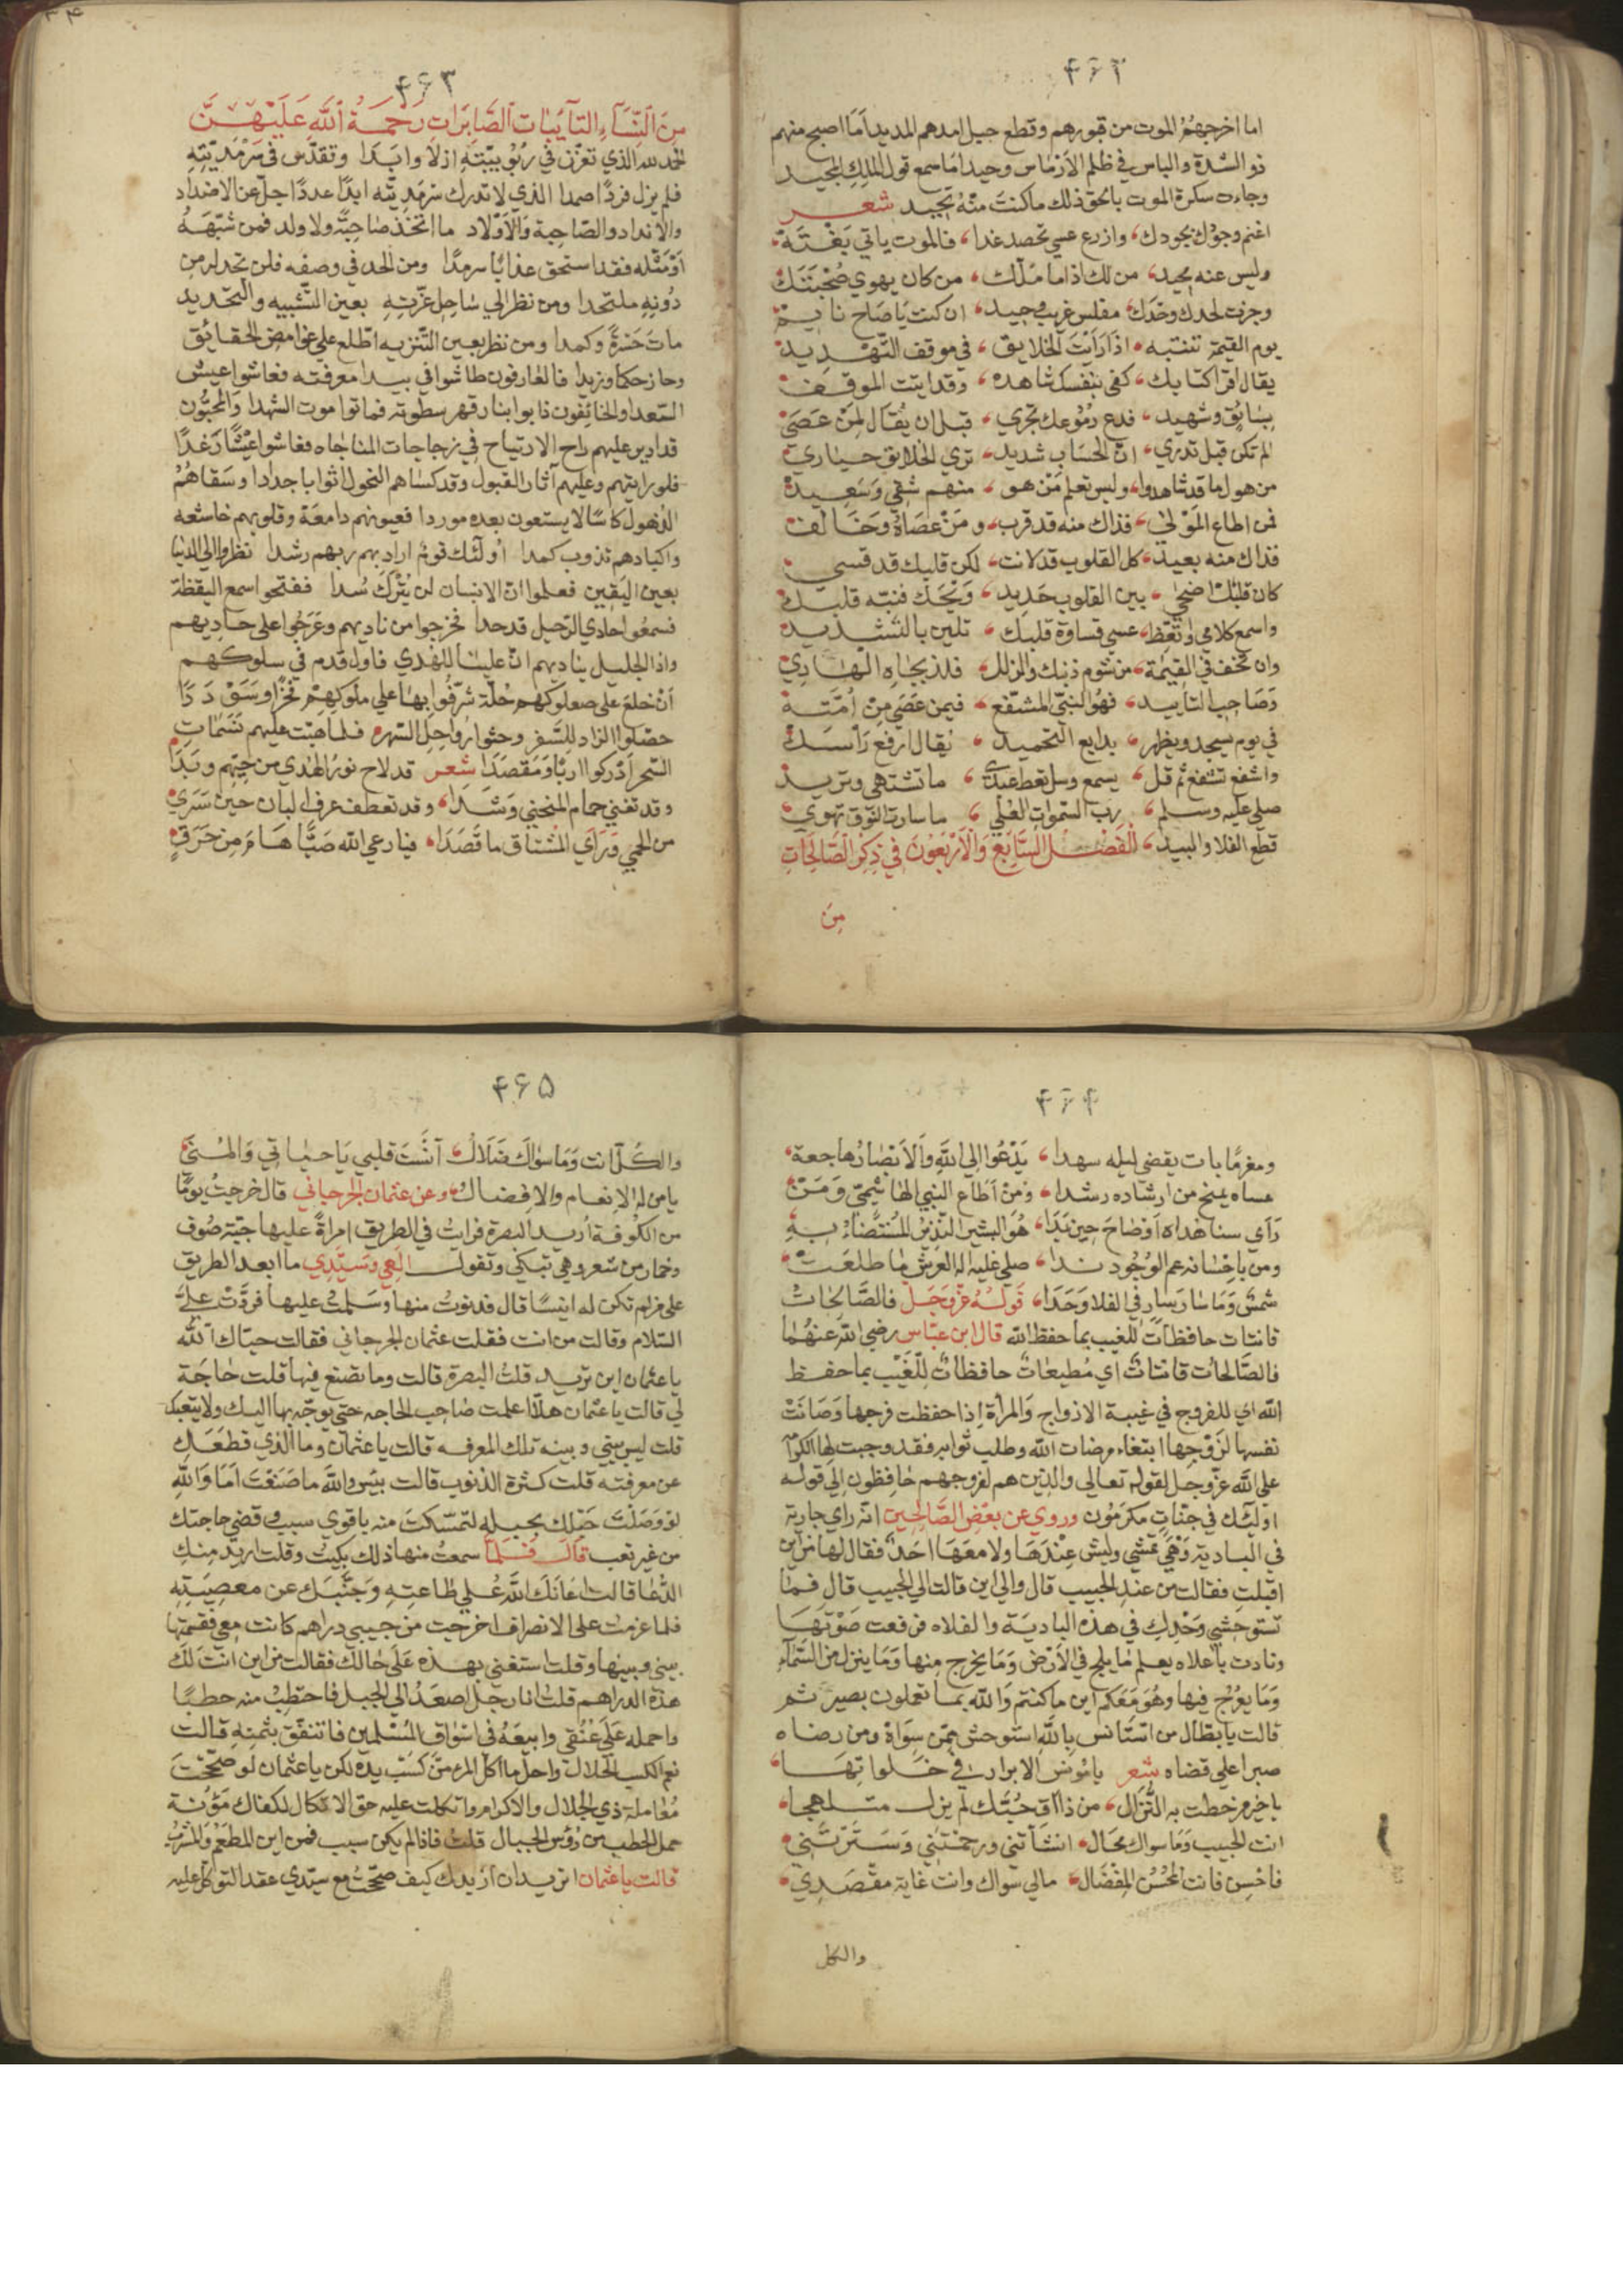 ۴۶۲
اما اخرجهم الموت من قبورهم وقطع حبل امدهم المديد اما اصبح منهم
ذو الشدة والباس في ظلم الارماس وحيدا ما سمع قول الملك المجيد
وجاءت سكرة الموت بالحق ذلك ما كنت منه تحيد شعر
اغنم وجوك بجودك، وازرع عسي تحصد غدا، فالموت ياتي بغتة،
وليس عنه محيد، من لك اذا ما ملك، من كان يهوي صحبتك
وجزت لحدك وحدك، مفلس غريب وحيد، ان كنت يا صاح نايم،
يوم القيمة تنتبه، اذا رايت الخلايق، في موقف التهديد،
يقال اقرا كتابك، كفي بنفسك شاهده، وقد ايتت الموقف،
بسايق وشهيد، فدع دموعك تجري، قبل ان يقال لمن عصي
الم تكن قبل تدري، ان الحساب شديد، تري الخلايق حياري
من هول ما قد شاهدوا، وليس تعلم من هو، منهم شقي وسعيد
فمن اطاع المولي، فذاك منه قد قرب، ومن عصاه وخالف،
فذاك منه بعيد، كل القلوب قد لانت، لكن قلبك قد قسي،
كان قلبك اضحي، بين القلوب حديد، ويحك فنبه قلبك
واسمع كلامي واتعظ، عسي قساوة قلبك، تلين بالتشديد
وان تخف في القيمة، من شوم ذنبك والزلل، فلذ بجاه الهادي
وصاحب التاييد، فهو النبي المشفع، فيمن عصي من امته
في يوم يسجد ويظهر، بدايع التحميد، يقال ارفع راسك
واشفع تشفع ثم قل، يسمع وسل تعط عبدي، ما تشتهي وتريد
صلي عليه وسلم، رب السموات العلي، ما سارت النوق تهوي
قطع الفلا والبيد، الفصل السابع والاربعون في ذكر الصالحات
من
۴۶۳
من النساء التايبات الصابرات رحمة الله عليهن
الحمد لله الذي تعزز في ربوبيته ازلا وابدا وتقدس في سرمديته
فلم يزل فردا صمدا الذي لا تدرك سرمديته ابدا عددا جل عن الاضداد
والانداد والصاحبة والاولاد ما اتخذ صاحبة ولا ولد فمن شبهه
او مثله فقد استحق عذابا سرمدا ومن الحد في وصفه فلن تجد له من
دونه ملتحدا ومن نظر الي ساحل عزته بعين التشبيه والتحديد
مات حسرة وكمدا ومن نظر بعين التنزيه اطلع علي غوامض الحقائق
وحاز حكما وزبدا فالعارفون طاشوا في بيدا معرفته فعاشوا عيش
السعدا والخائفون ذابوا بنار قهر سطوته فماتوا موت الشهدا والمحبون
قد ادير عليهم راح الارتياح في زجاجات المناجاه فعاشوا عيشا رغدا
فلو رايتهم وعليهم آثار القبول وقد كساهم النحول اثوابا جددا وسقاهم
الذهول كاسا لا يستعون بعده موردا فعيونهم دامعة وقلوبهم خاشعه
واكبادهم تذوب كمدا اولئك قوم اراد بهم ربهم رشدا نظروا الي الدنيا
بعين اليقين فعلموا ان الانسان لن يترك سدا ففتحوا سمع اليقظة
فسمعوا حادي الرحيل قد حدا فخرجوا من ناديهم وعرجوا علي حاديهم
واذا الجليل يناديهم ان علينا للهدي فاول قدم في سلوكهم
ان خلع علي صعلوكهم حلة شرفوا بها علي ملوكهم فخرا وسوددا
حصلوا الزاد للسفر وحثوا رواحل السهر فلما هبت عليهم نسمات
السحر ادركوا اربا ومقصدا شعر قد لاح نور الهدي من حيهم وبدا
وقد تغني حمام المنحني وشدا، وقد تعطف عرف البان حين سري
من الحمي وراي المشتاق ما قصدا، فيا رعي الله صبا هام من حرق
۴۶۴
ومغرما بات يقضي ليله سهدا، يدعوا الي الله والابصار هاجعة،
عساه يمنح من ارشاده رشدا، ومن اطاع النبي الهاشمي ومن
راي سنا هداه اوضاح حين بدا، هو البشير النذير المستضاء به
ومن باحسانه عم الوجود ندا، صلي عليه اله العرش ما طلعت
شمس وما سار سار في الفلا وحدا، قوله عز وجل فالصالحات
قانتات حافظات للغيب بما حفظ الله قال ابن عباس رضي الله عنهما
فالصالحات قانتات اي مطيعات حافظات للغيب بما حفظ
الله اي للفروج في غيبة الازواج والمراة اذا حفظت فرجها وصانت
نفسها لزوجها ابتغاء مرضات الله وطلب ثوابه فقد وجبت لها الكرامة
علي الله عز وجل لقوله تعالي والذين هم لفروجهم حافظون الي قوله
اولئك في جنات مكرمون وروي عن بعض الصالحين انه راي جارية
في البادية وهي تمشي وليس عندها ولا معها احد فقال لها من اين
اقبلت فقالت من عند الحبيب قال والي اين قالت الي الحبيب قال فما
تستوحشي وحدك في هذه البادية والفلاه فرفعت صوتها
ونادت باعلاه يعلم ما يلج في الارض وما يخرج منها وما ينزل من السماء
وما يعرج فيها وهو معكم اين ما كنتم والله بما تعملون بصير ثم
قالت يا بطال من استانس بالله استوحش ممن سواه ومن رضاه
صبرا علي قضاه شعر يا مونس الابرار في خلواتها،
يا خير من حطت به النزال، من ذاق حبك لم يزل متلهجا،
انت الحبيب وما سواك محال، انشاتني ورحمتني وسترتني،
فاحسن فانت المحسن المفضال، مالي سواك وانت غاية مقصدي،
والكل
۴۶۵
والكل انت وما سواك ضلال، آنست قلبي يا حياتي والمني
يا من له الانعام والافضال، وعن عثمان الجرجاني قال خرجت يوما
من الكوفة اريد البصرة فرايت في الطريق امراة عليها جبة صوف
وخمار من شعر وهي تبكي وتقول الهي وسيدي ما ابعد الطريق
علي من لم تكن له انيسا قال فدنوت منها وسلمت عليها فردت علي
السلام وقالت من انت فقلت عثمان الجرجاني فقالت حياك الله
يا عثمان اين تريد قلت البصرة قالت وما تصنع فيها قلت حاجة
لي قالت يا عثمان هلا علمت صاحب الحاجه حتي يوجه بها اليك ولا يتعبك
قلت ليس بيني وبينه تلك المعرفه قالت يا عثمان وما الذي قطعك
عن معرفته قلت كثرة الذنوب قالت بئس والله ما صنعت اما والله
لو وصلت حبلك بحبله لتمسكت منه باقوي سبب وقضي حاجتك
من غير تعب قال فلما سمعت منها ذلك بكيت وقلت اريد منك
الدعا قالت اعانك الله علي طاعته وجنبك عن معصيته
فلما عزمت علي الانصراف اخرجت من جيبي دراهم كانت معي فقسمتها
بيني وبينها وقلت استغني بهذه علي حالك فقالت من اين انت لك
هذه الدراهم قلت انا رجل اصعد الي الجبل فاحتطب منه حطبا
واحمله علي عنقي وابيعه في اسواق المسلمين فاتنفق بثمنه قالت
نعم الكسب الحلال واحل ما اكل المرء من كسب يده لكن يا عثمان لو صححت
معاملة ذي الجلال والاكرام واتكلت عليه حق الاتكال لكفاك مؤنة
حمل الحطب من رؤس الجبال قلت فاذا لم يكن سبب فمن اين المطعم والمشرب
قالت يا عثمان اتريد ان اريك كيف صححت مع سيدي عقد التوكل عليه